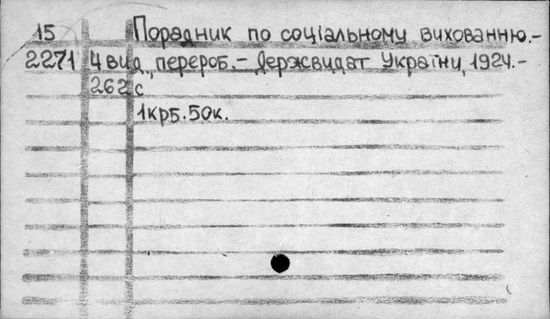 15 Порадник по соціальному вихованню.-
2271 4 вид., перероб.- Держвидат України, 1924.-
262 с
1крб.50к.